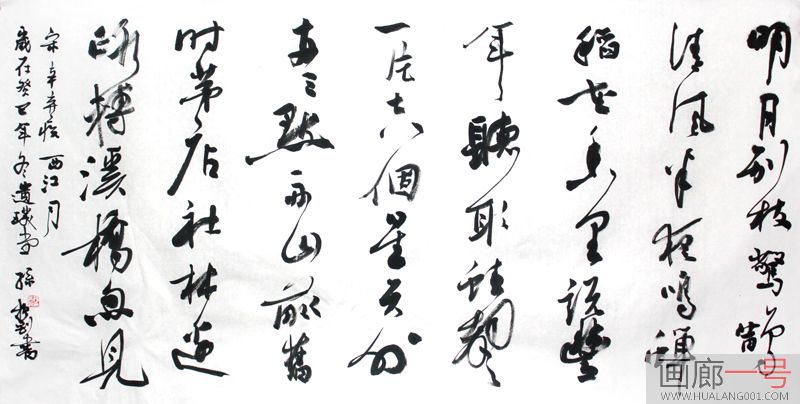 明月别枝驚鵲
清風半夜鳴蟬
稻花香里説豐
年聽取蛙聲
一片七八個星天外
两三點雨山前舊
时茅店社林邊
路轉溪橋忽見
宋辛弃疾 西江月
歲在癸巳年冬 孫 書
画廊一号
WWW.HUALANG001.COM